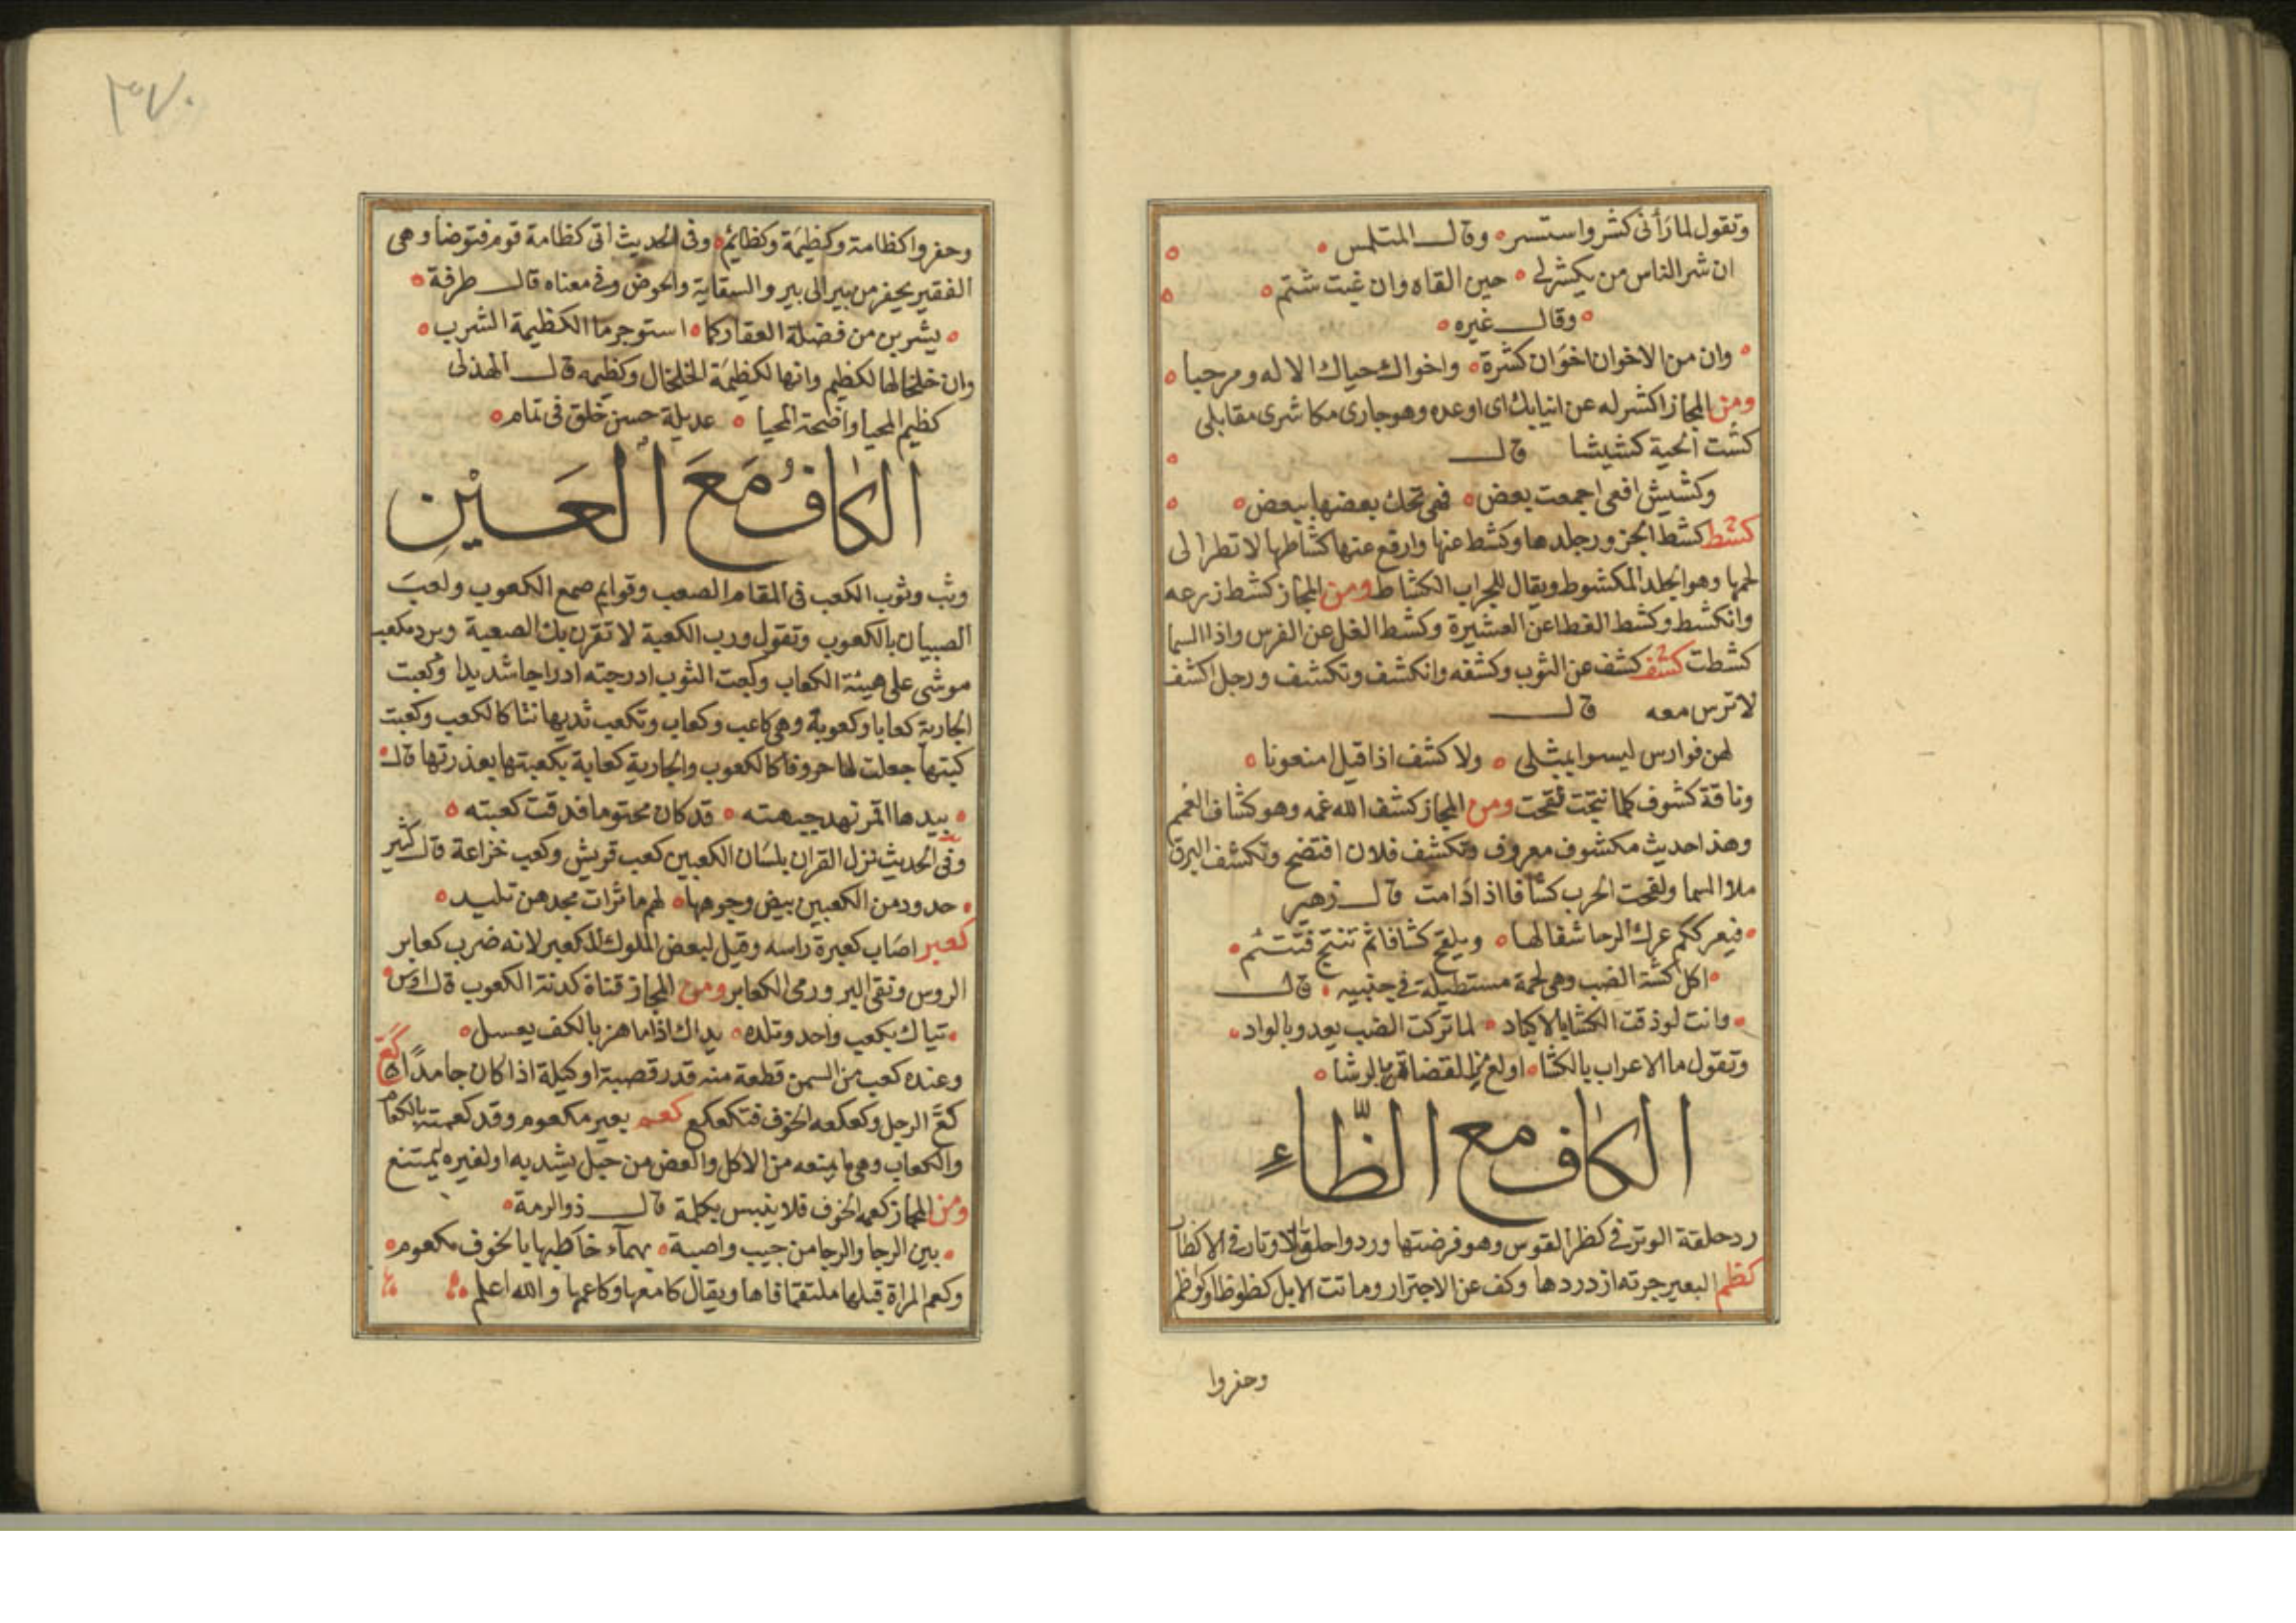 وتقول لما رأنى كشر واستسر وقال المتلمس
ان شر الناس من يكشر لى حين القاه وان غبت شتم
وقال غيره
وان من الاخوان اخوان كشرة واخوان حياك الاله ومرحبا
ومن المجاز اكشر له عن انيابك اى اوعده وهو جارى مكاشرى مقابلى
كشت الحية كشيشا قال
وكشيش افعى اجمعت بعض فهى تحك بعضها ببعض
كشط كشط الجزور جلدها وكشط عنها وارفع عنها كشاطها لانظر الى
لحمها وهو الجلد المكشوط ويقال للجراب الكشاط ومن المجاز كشط زرعه
وانكشط وكشط القطا عن العشيرة وكشط الغل عن الفرس واذا السما
كشطت كشف كشف عن الثوب وكشفه وانكشف وتكشف ورجل اكشف
لا ترس معه قال
لهن فوارس ليسوا بمثلى ولا كشف اذا قيل امنعونا
وناقة كشوف كلما نتجت لقحت ومن المجاز كشف الله غمه وهو كشاف الغمم
وهذا حديث مكشوف معروف وتكشف فلان افتضح وتكشف البرق
ملا السما ولقحت الحرب كشافا اذا دامت قال زهير
فتعرككم عرك الرحا بثفالها ويلقح كشافا ثم تنتج فتتئم
اكل كشة الضب وهى لحمة مستطيلة فى جنبيه قال
وانت لو ذقت الكشا بالاكباد لما تركت الضب يعدو بالواد
وتقول ما الاعراب بالكشا اولع من القضاة بالرشا
الكاف مع الظاء
رد حلقة الوتر فى كظر القوس وهو فرضتها وردوا حلق الاوتار فى الاكظار
كظم البعير جرته ازدردها وكف عن الاجترار وماتت الابل كظوظا وكواظم
وحفروا
٣٧٠
وحفروا كظامة وكظيمة وكظائم وفى الحديث اتى كظامة قوم فتوضا وهى
الفقير يحفر من بير الى بير والسقاية والحوض وفى معناه قال طرفة
يشربن من فضلة العقار كما استوجر ما الكظيمة الشرب
وان خلخالها لكظيم وانها لكظيمة الخلخال وكظيمه قال الهذلى
كظيم المحيا واضحة المحيا عديلة حسن خلق فى تمام
الكاف مع العين
وثب وثوب الكعب فى المقام الصعب وقوايم صمع الكعوب ولعب
الصبيان بالكعوب وتقول ورب الكعبة لا تقرن بك الصعبة وبرد مكعب
موشى على هيئة الكعاب وكعبت الثوب ادرجته ادراجا شديدا وكعبت
الجارية كعابا وكعوبة وهى كاعب وكعاب وتكعب ثديها نتا كالكعب وكعبت
كبتها جعلت لها حروفا كالكعوب والجارية كعابة بكعبتها بعذرتها قال
بيدها التمر تهد جبهته قد كان مختوما فدقت كعبته
وفى الحديث نزل القران بلسان الكعبين كعب قريش وكعب خزاعة قال كثير
حدود من الكعبين بيض وجوهها لهم ماثرات مجدهن تليد
كعبر اصاب كعبرة راسه وقيل لبعض الملوك المكعبر لانه ضرب كعابر
الروس ونقى البر ورمى الكعابر ومن المجاز قناة لدنة الكعوب قال اوس
تياك بكعب واحد وتلده يداك اذا ما هز بالكف يعسل
وعنده كعب من السمن قطعة منه قدر قصبة او كيلة اذا كان جامدا كع
كع الرجل وكعكعه الخوف فتكعكع كعم بعير مكعوم وقد كعمته بالكعام
والكعاب وهى ما يمنعه من الاكل والعض من حبل يشد به او لغيره ليمتنع
ومن المجاز كعمه الخوف فلا ينبس بكلمة قال ذو الرمة
بين الرجا والرجا من جيب واصية يهماء خاطبها بالخوف مكعوم
وكعم المراة قبلها ملتقما فاها ويقال كامعها وكاعمها والله اعلم